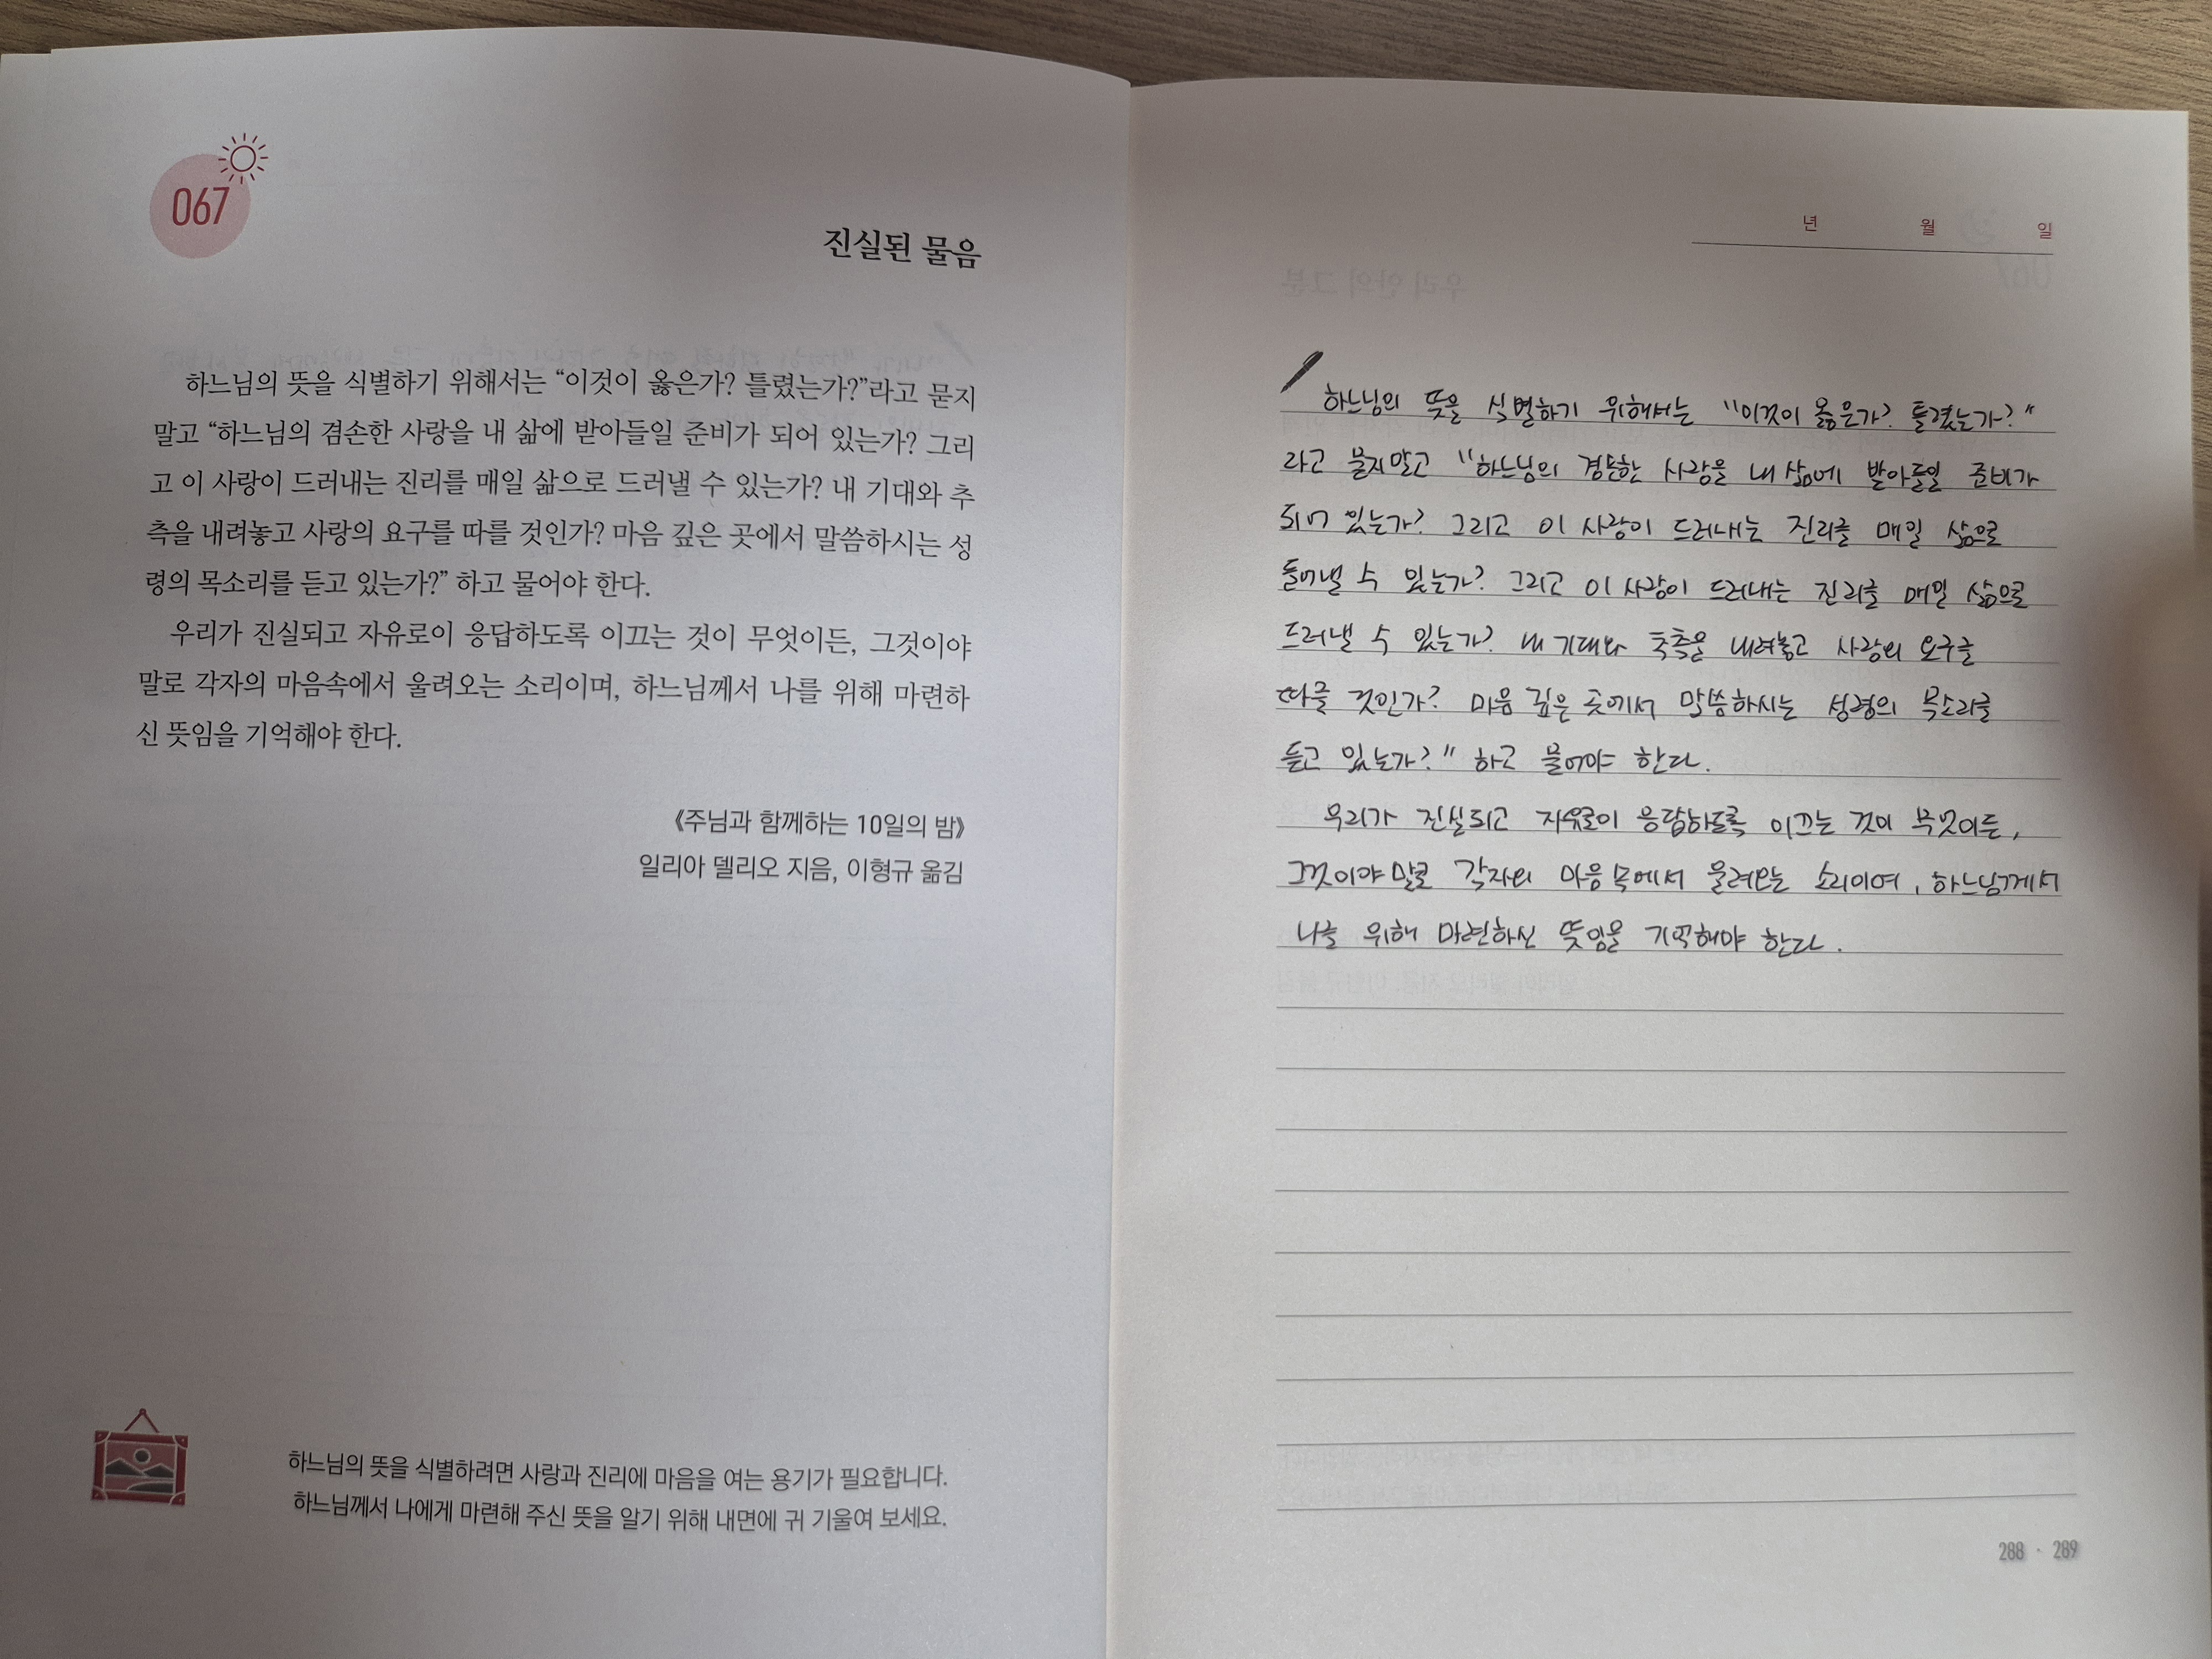 067
진실된 물음
하느님의 뜻을 식별하기 위해서는 “이것이 옳은가? 틀렸는가?”라고 묻지
말고 “하느님의 겸손한 사랑을 내 삶에 받아들일 준비가 되어 있는가? 그리
고 이 사랑이 드러내는 진리를 매일 삶으로 드러낼 수 있는가? 내 기대와 추
측을 내려놓고 사랑의 요구를 따를 것인가? 마음 깊은 곳에서 말씀하시는 성
령의 목소리를 듣고 있는가?” 하고 물어야 한다.
우리가 진실되고 자유로이 응답하도록 이끄는 것이 무엇이든, 그것이야
말로 각자의 마음속에서 울려오는 소리이며, 하느님께서 나를 위해 마련하
신 뜻임을 기억해야 한다.
《주님과 함께하는 10일의 밤》
일리아 델리오 지음, 이형규 옮김
하느님의 뜻을 식별하려면 사랑과 진리에 마음을 여는 용기가 필요합니다.
하느님께서 나에게 마련해 주신 뜻을 알기 위해 내면에 귀 기울여 보세요.
년 월 일
하느님의 뜻을 식별하기 위해서는 "이것이 옳은가? 틀렸는가?"
라고 묻지말고 "하느님의 겸손한 사랑을 내 삶에 받아들일 준비가
되어 있는가? 그리고 이 사랑이 드러내는 진리를 매일 삶으로
들어낼 수 있는가? 그리고 이 사랑이 드러내는 진리를 매일 삶으로
드러낼 수 있는가? 내 기대와 추측을 내려놓고 사랑의 요구를
따를 것인가? 마음 깊은 곳에서 말씀하시는 성령의 목소리를
듣고 있는가?" 하고 물어야 한다.
우리가 진실되고 자유로이 응답하도록 이끄는 것이 무엇이든,
그것이야 말로 각자의 마음 속에서 울려오는 소리이며, 하느님께서
나를 위해 마련하신 뜻임을 기억해야 한다.
288 · 289